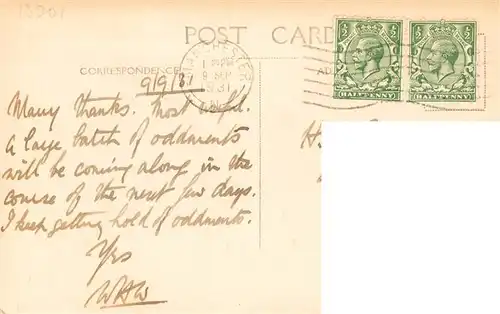 13901
POST CARD
MANCHESTER
1 PM
9 SEP
1931
CORRESPONDENCE
AD
HALFPENNY
HALFPENNY
9/9/31
Many thanks. Most helpful.
A large batch of oddments
will be coming along in the
course of the next few days.
I keep getting hold of oddments.
Yrs
WHW
H.